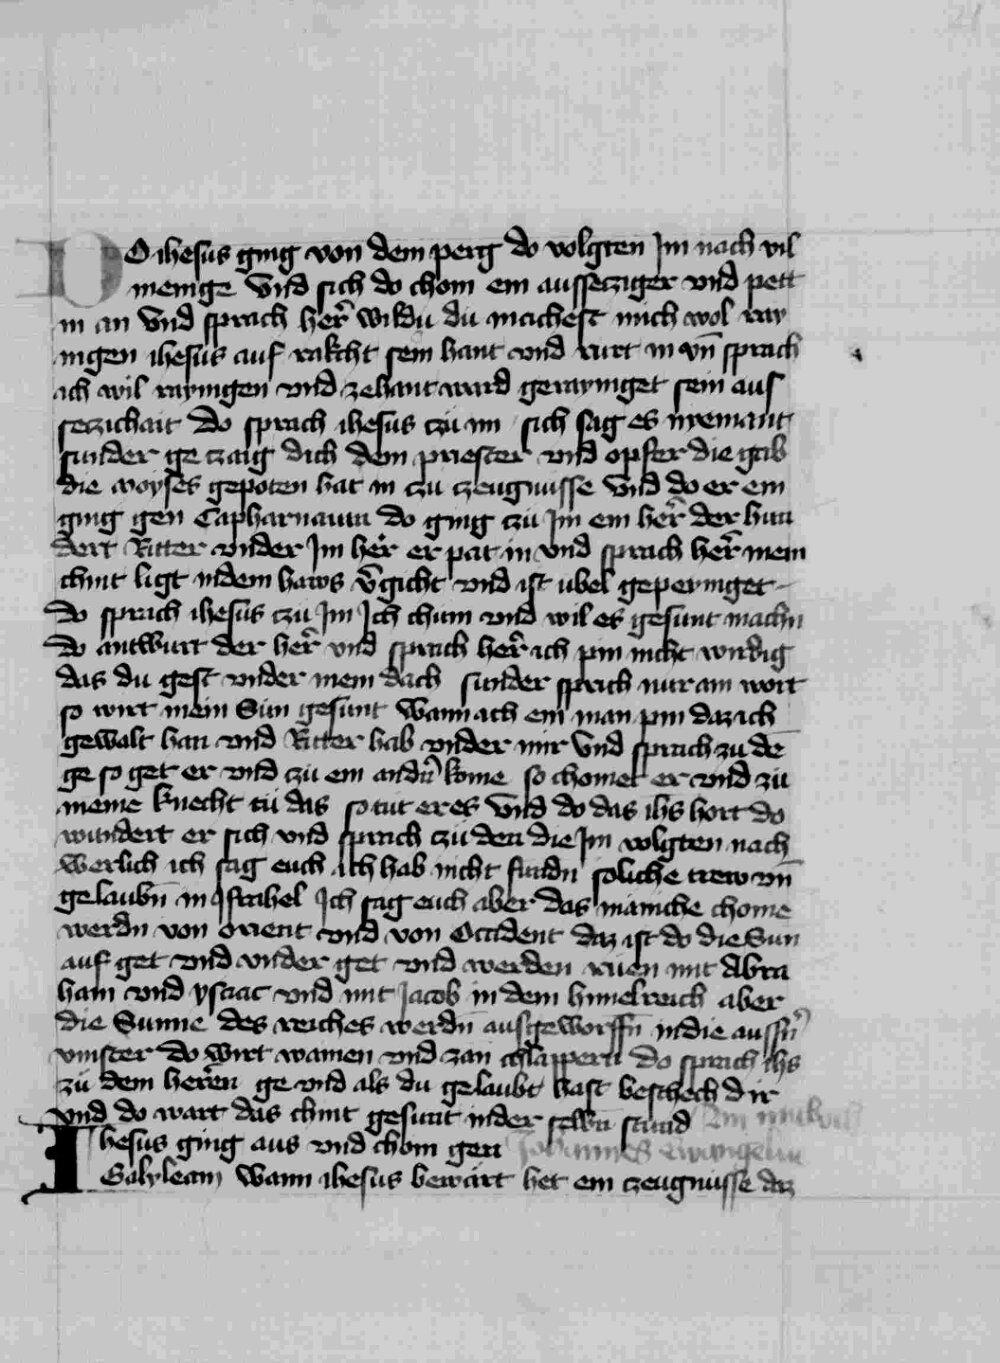 21
DO ihesus ging von dem perg do volgten Im nach vil
menige Vnd sich do chom ein aussecziger vnd pett
in an Vnd sprach her̄ wildu du machest mich wol ray
nigen ihesus auf rakcht sein hant vnd rurt in vn̄ sprach
ich wil raynigen vnd zehant ward gerayniget sein aus
seczichait Do sprach ihesus czu im sich sag es nyemant
sunder ge czaig dich dem priester vnd opfer die gab
die moyses gepoten hat in czu czeugnusse Vnd do er ein
ging gen Capharnaum do ging czu Im ein her̄ der hun
dert Ritter vnder Im het er pat in vnd sprach her̄ mein
chint ligt indem haws v̄gicht vnd ist ubel gepeyniget
do sprach ihesus czu Im Ich chum vnd wil es gesunt machn
do antwurt der her̄ vnd sprach her̄ ich pin nicht wirdig
das du gest vnder mein dach sunder sprich nur ain wort
so wirt mein Sun gesunt Wann ich ein man pin daz ich
gewalt han vnd Ritter hab vnder mir Vnd sprach zu dē
ge so get er vnd czu em andn̄ kome so chomet er vnd zu
meine knecht tu das so tut er es Vnd do das ihs hort do
wundert er sich vnd sprach czu den die Im volgten nach
werlich ich sag euch ich hab nicht fundn soliche trew vn̄
gelaubn̄ in Israhel Ich sag euch aber das maniche chome
werdn von orient vnd von Occident daz ist do die Sun
auf get vnd vnder get vnd werden ruen mit Abra
ham vnd ysaac vnd mit Jacob in dem himelreich aber
die Sunne des reiches werdn̄ ausgeworffn̄ indie aussn̄
vinster do wirt wainen vnd zan chlappern do sprach ihs
zu dem heren ge vnd als du gelaubt hast beschech dir
vnd do wart das chint gesunt inder selbn̄ stund Am mitwoch
Ihesus ging aus vnd chom gen Johannes Ewangelin
Galyleam Wann ihesus bewart het ein czeugnusse daz